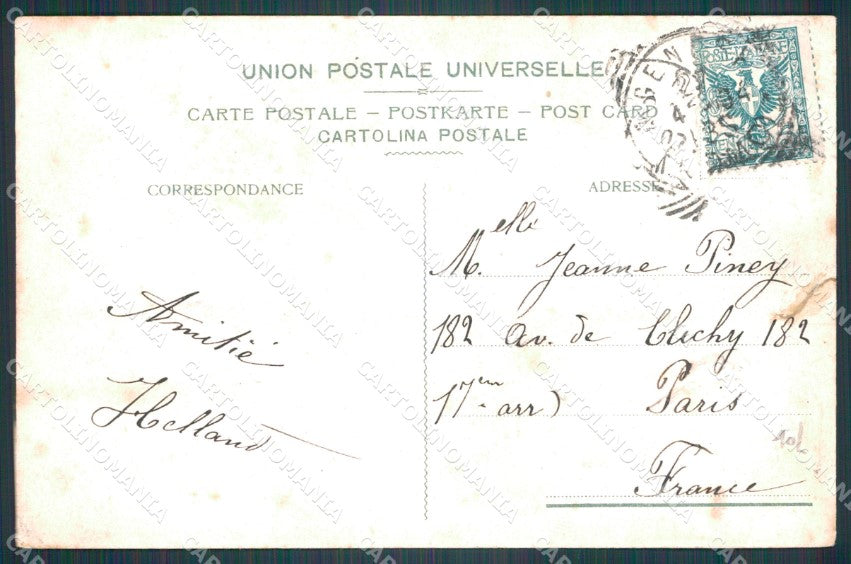 UNION POSTALE UNIVERSELLE
CARTE POSTALE – POSTKARTE – POST CARD
CARTOLINA POSTALE
CORRESPONDANCE
ADRESSE
Amitié
Helland
M.elle Jeanne Piney
182 Av. de Clichy 182
17em arr) Paris
France
POSTE ITALIANE
CARTOLINOMANIA